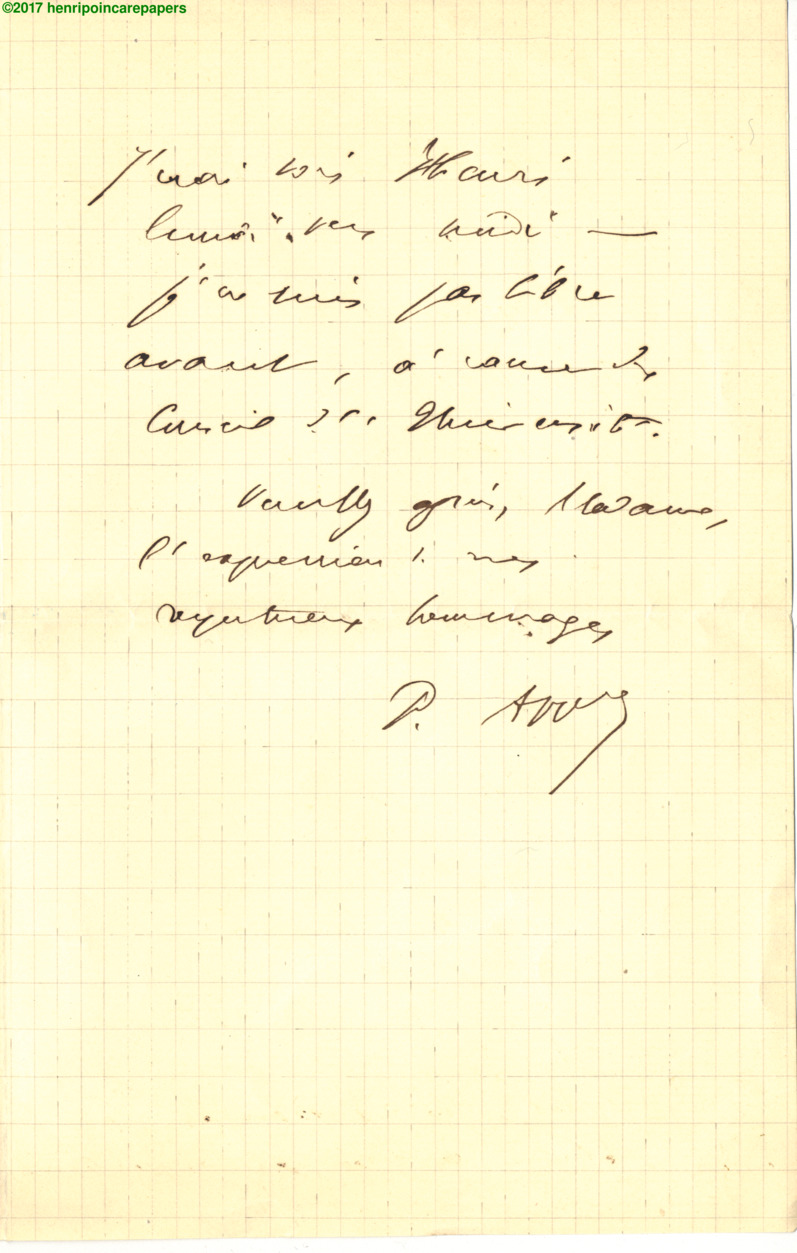 ©2017 henripoincarepapers
J'irai voir Henri
lundi vers midi —
je ne suis pas libre
avant, à cause du
Conseil de l'Université.
Veuillez agréer, Madame,
l'expression de mes
respectueux hommages
P. Appell